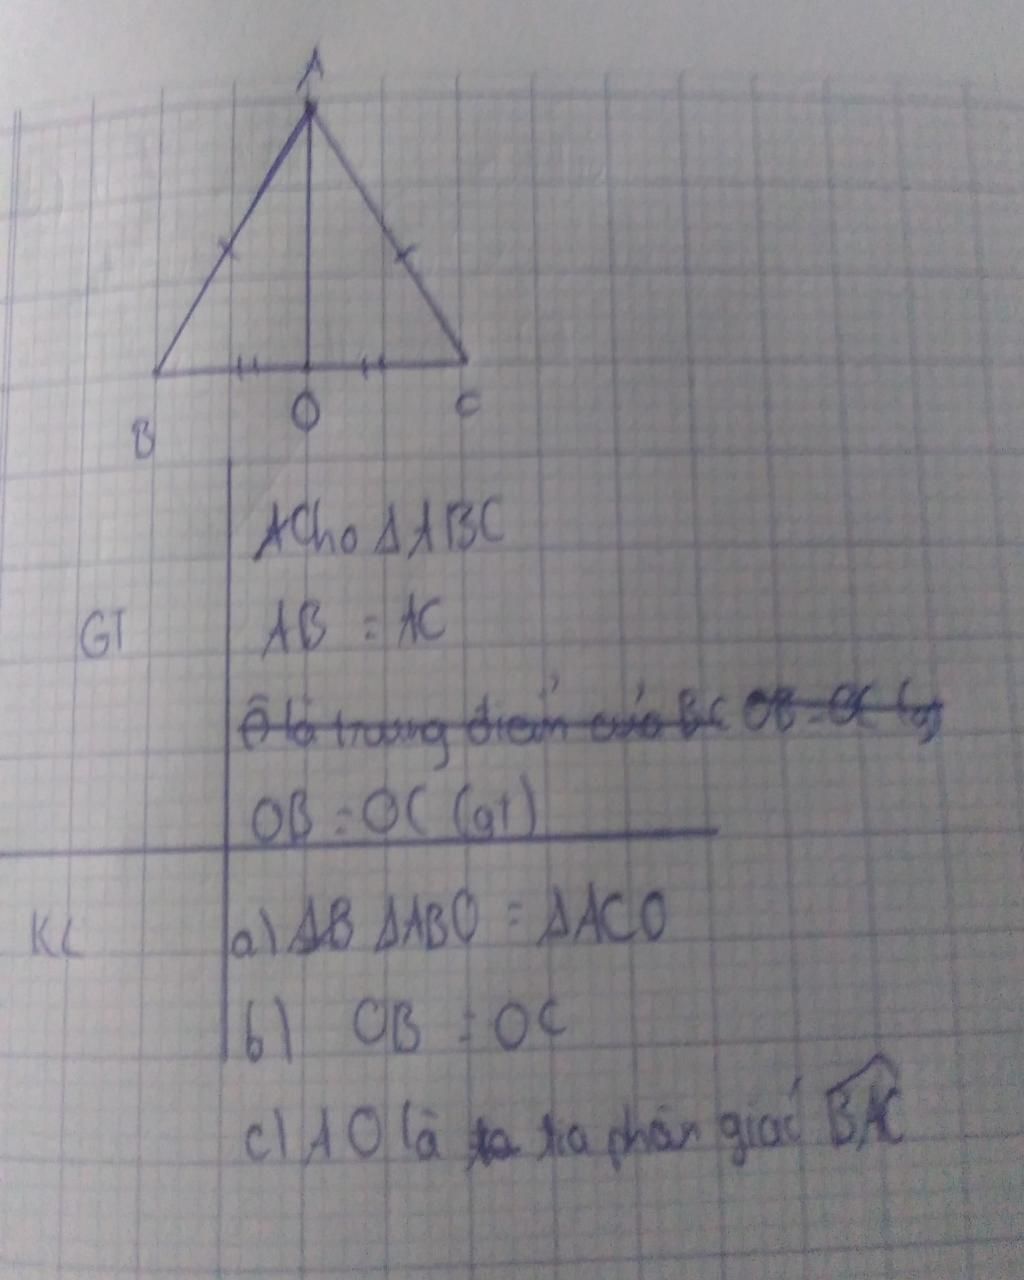 A
B O C
Cho ΔABC
GT AB = AC
O là trung điểm của BC OB = OC (gt)
OB = OC (gt)
KL a) ΔABO = ΔACO
b) OB = OC
c) AO là tia phân giác BAC